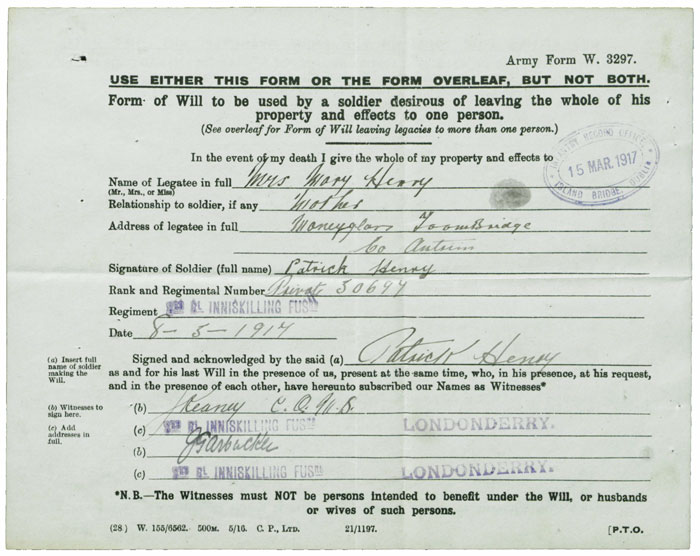 Army Form W. 3297.
USE EITHER THIS FORM OR THE FORM OVERLEAF, BUT NOT BOTH.
Form of Will to be used by a soldier desirous of leaving the whole of his
property and effects to one person.
(See overleaf for Form of Will leaving legacies to more than one person.)
INFANTRY RECORD OFFICE
15 MAR. 1917
ISLAND BRIDGE, DUBLIN
In the event of my death I give the whole of my property and effects to
Name of Legatee in full Mrs Mary Henry
(Mr., Mrs., or Miss)
Relationship to soldier, if any Mother
Address of legatee in full Moneyglass ToomeBridge
Co Antrim
Signature of Soldier (full name) Patrick Henry
Rank and Regimental Number Private 30697
Regiment RL INNISKILLING FUSRS
Date 8-5-1917
(a) Insert full
name of soldier
making the
Will.
Signed and acknowledged by the said (a) Patrick Henry
as and for his last Will in the presence of us, present at the same time, who, in his presence, at his request,
and in the presence of each other, have hereunto subscribed our Names as Witnesses*
(b) Witnesses to
sign here.
(b) J Keaney C.Q.M.S.
(c) Add
addresses in
full.
(c) RL INNISKILLING FUSRS LONDONDERRY.
(b) J Garbuckle
(c) RL INNISKILLING FUSRS LONDONDERRY.
*N.B.—The Witnesses must NOT be persons intended to benefit under the Will, or husbands
or wives of such persons.
(28.) W. 155/6562. 500M. 5/16. C. P., LTD. 21/1197. [P.T.O.